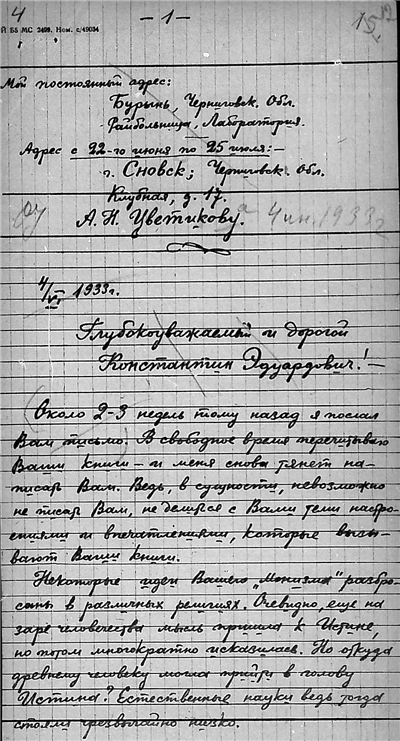 4
- 1 -
15
Й Б5 МС 2499. Ном. с/49034
Мой постоянный адрес:
Бурынь, Черниговск. Обл.
Райбольница, Лаборатория.
Адрес с 22-го июня по 25 июля:-
г. Сновск; Черниговск. Обл.
Клубная, д. 17.
А. Н. Цветикову.
4 ин. 1933 г
4/VI 1933г.
Глубокоуважаемый и дорогой
Константин Эдуардович! -
Около 2-3 недель тому назад я послал
Вам письмо. В свободное время перечитываю
Ваши книги - и меня снова тянет на-
писать Вам. Ведь, в сущности, невозможно
не писать Вам, не делиться с Вами теми настро-
ениями и впечатлениями, которые вызы-
вают Ваши книги.
Некоторые идеи Вашего „Монизма" разбро-
саны в различных религиях. Очевидно, еще на
заре человечества мысль пришла к Истине,
но потом многократно исказилась. Но откуда
древнему человеку могла прийти в голову
Истина? Естественные науки ведь тогда
стояли чрезвычайно низко.